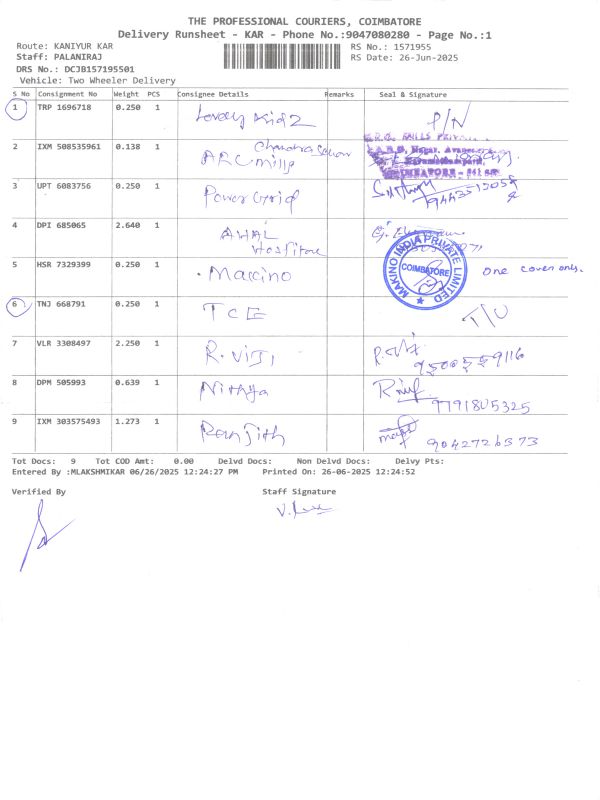 THE PROFESSIONAL COURIERS, COIMBATORE
Delivery Runsheet - KAR - Phone No.:9047080280 - Page No.:1
Route: KANIYUR KAR RS No.: 1571955
Staff: PALANIRAJ RS Date: 26-Jun-2025
DRS No.: DCJB157195501
Vehicle: Two Wheeler Delivery
S No Consignment No Weight PCS Consignee Details Remarks Seal & Signature
1 TRP 1696718 0.250 1 Lovely Kidz P/N
2 IXM 508535961 0.138 1 ARC Mills
3 UPT 6083756 0.250 1 Power Grid
4 DPI 685065 2.640 1 Hospital
5 HSR 7329399 0.250 1 Makino MAKINO INDIA PRIVATE LIMITED COIMBATORE one cover only.
6 TNJ 668791 0.250 1 TCE T/U
7 VLR 3308497 2.250 1 R. VIJI
8 DPM 505993 0.639 1 Nithya 9791805325
9 IXM 303575493 1.273 1 Ranjith 9042726373
Tot Docs: 9 Tot COD Amt: 0.00 Delvd Docs: Non Delvd Docs: Delvy Pts:
Entered By :MLAKSHMIKAR 06/26/2025 12:24:27 PM Printed On: 26-06-2025 12:24:52
Verified By Staff Signature